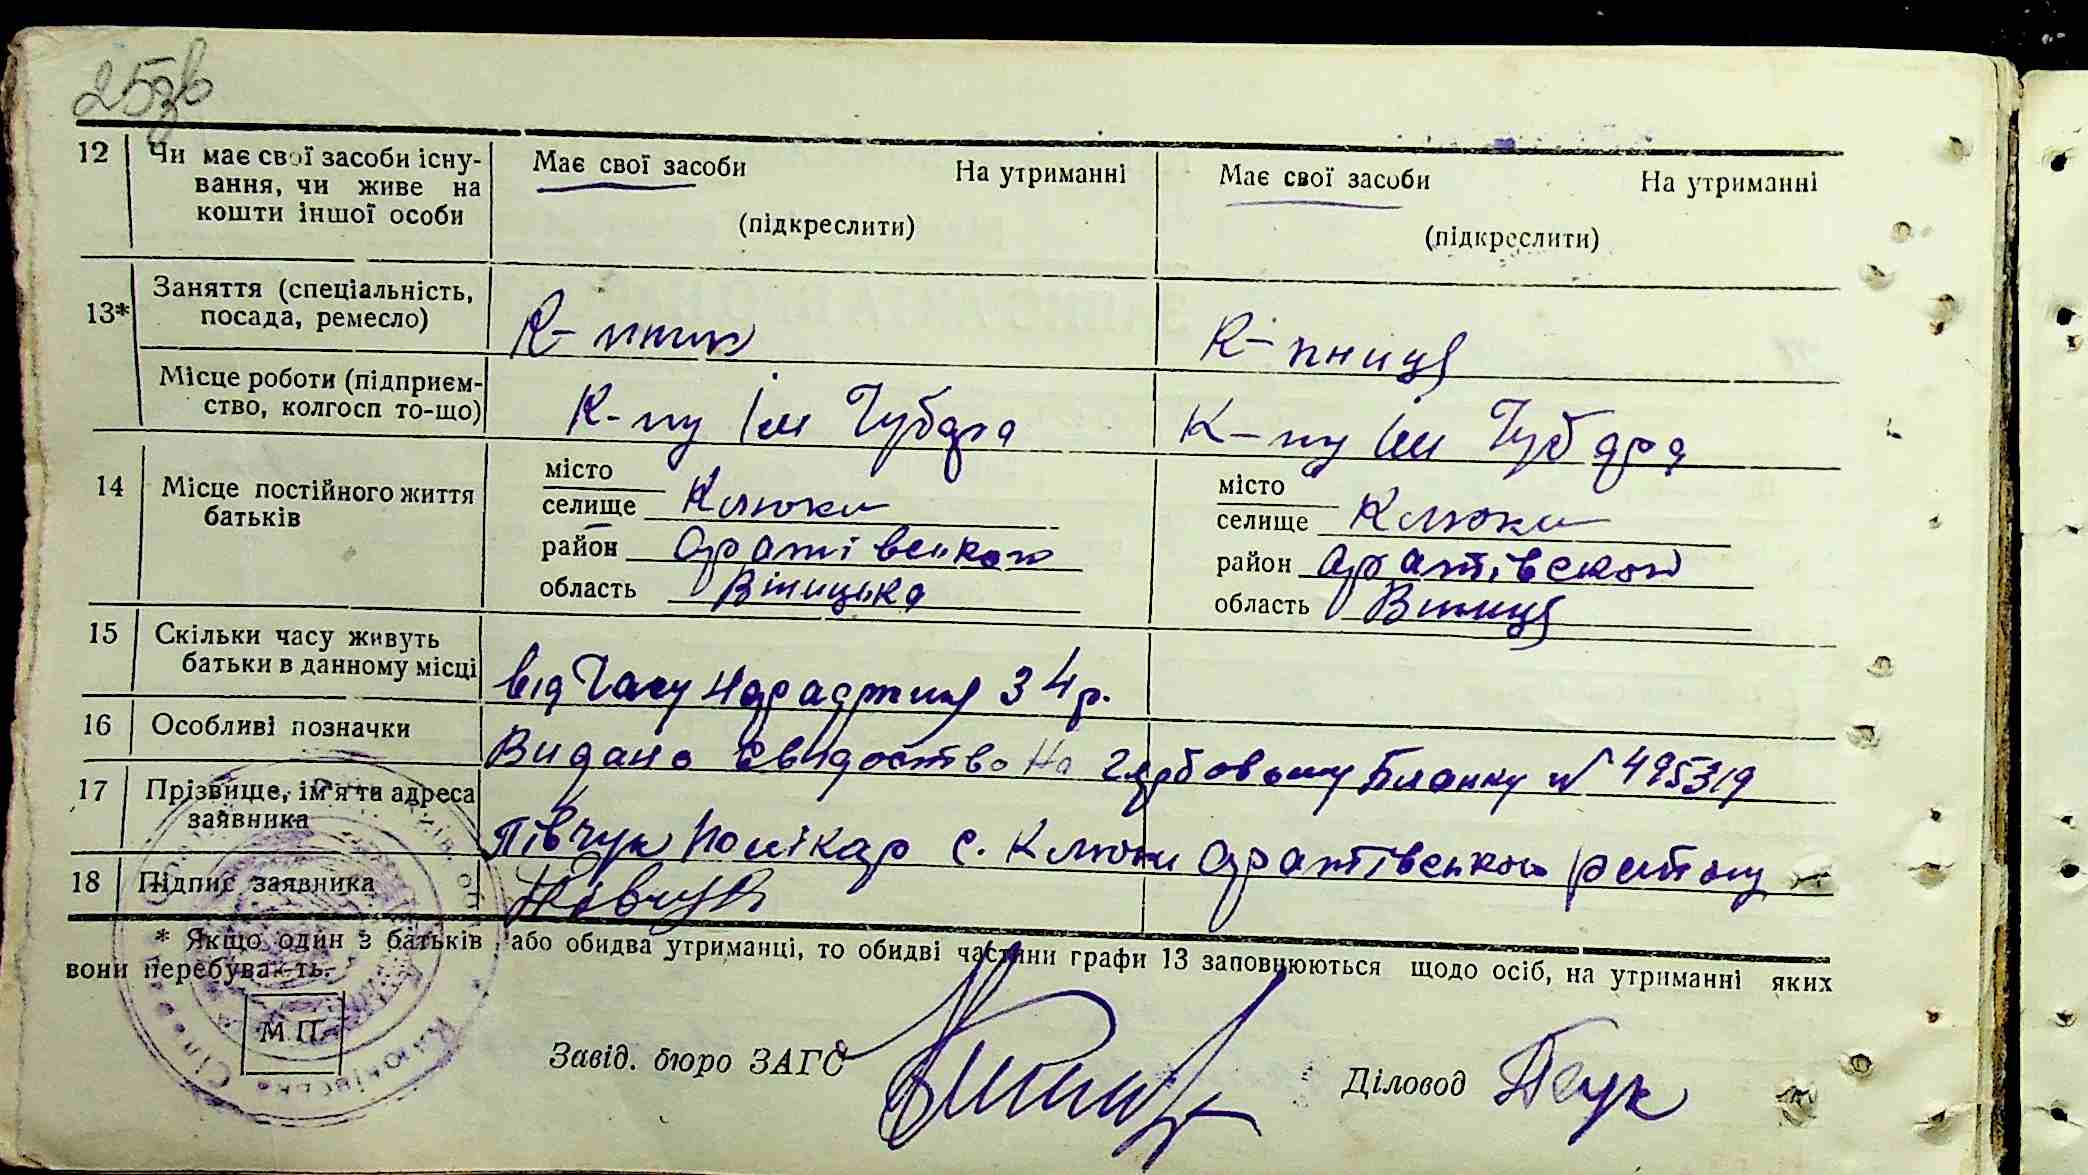 25зв
12 Чи має свої засоби існу- Має свої засоби На утриманні Має свої засоби На утриманні
вання, чи живе на
кошти іншої особи (підкреслити) (підкреслити)
13* Заняття (спеціальність,
посада, ремесло) К-пник К-пниця
Місце роботи (підприєм-
ство, колгосп то-що) К-пу Ім Чубаря К-пу Ім Чубаря
14 Місце постійного життя
батьків
місто місто
селище Клюки селище Клюки
район Оратівського район Оратівского
область Віницька область Віниця
15 Скільки часу живуть
батьки в данному місці від Часу Народження 34р.
16 Особливі позначки Видано Свидоство На гербовому Бланку № 495319
17 Прізвище, ім'я та адреса
заявника Півчук с. Клюки Оратівського району
18 Підпис заявника Півчук
* Якщо один з батьків, або обидва утриманці, то обидві частини графи 13 заповнюються щодо осіб, на утриманні яких
вони перебувають.
М.П.
Завід. бюро ЗАГС Діловод
Клюківська Сіль